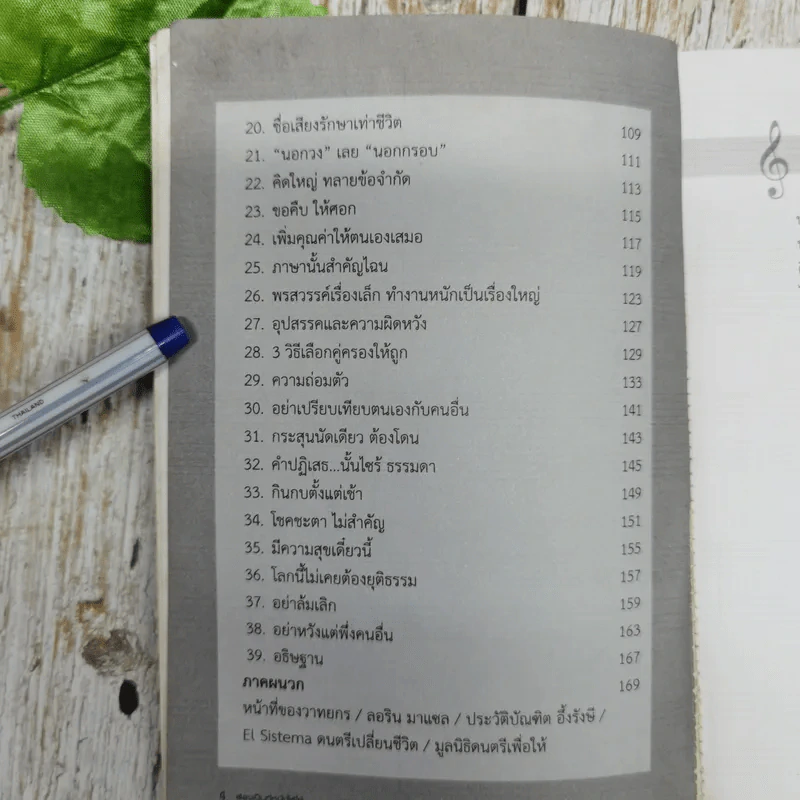 20. ชื่อเสียงรักษาเท่าชีวิต 109
21. “นอกวง” เลย “นอกกรอบ” 111
22. คิดใหญ่ ทลายข้อจำกัด 113
23. ขอคืบ ให้ศอก 115
24. เพิ่มคุณค่าให้ตนเองเสมอ 117
25. ภาษานั้นสำคัญไฉน 119
26. พรสวรรค์เรื่องเล็ก ทำงานหนักเป็นเรื่องใหญ่ 123
27. อุปสรรคและความผิดหวัง 127
28. 3 วิธีเลือกคู่ครองให้ถูก 129
29. ความถ่อมตัว 133
30. อย่าเปรียบเทียบตนเองกับคนอื่น 141
31. กระสุนนัดเดียว ต้องโดน 143
32. คำปฏิเสธ...นั้นไซร้ ธรรมดา 145
33. กินกบตั้งแต่เช้า 149
34. โชคชะตา ไม่สำคัญ 151
35. มีความสุขเดี๋ยวนี้ 155
36. โลกนี้ไม่เคยต้องยุติธรรม 157
37. อย่าล้มเลิก 159
38. อย่าหวังแต่พึ่งคนอื่น 163
39. อธิษฐาน 167
ภาคผนวก 169
หน้าที่ของวาทยกร / ลอริน มาแซล / ประวัติบัณฑิต อึ้งรังษี /
El Sistema ดนตรีเปลี่ยนชีวิต / มูลนิธิดนตรีเพื่อให้
THAILAND